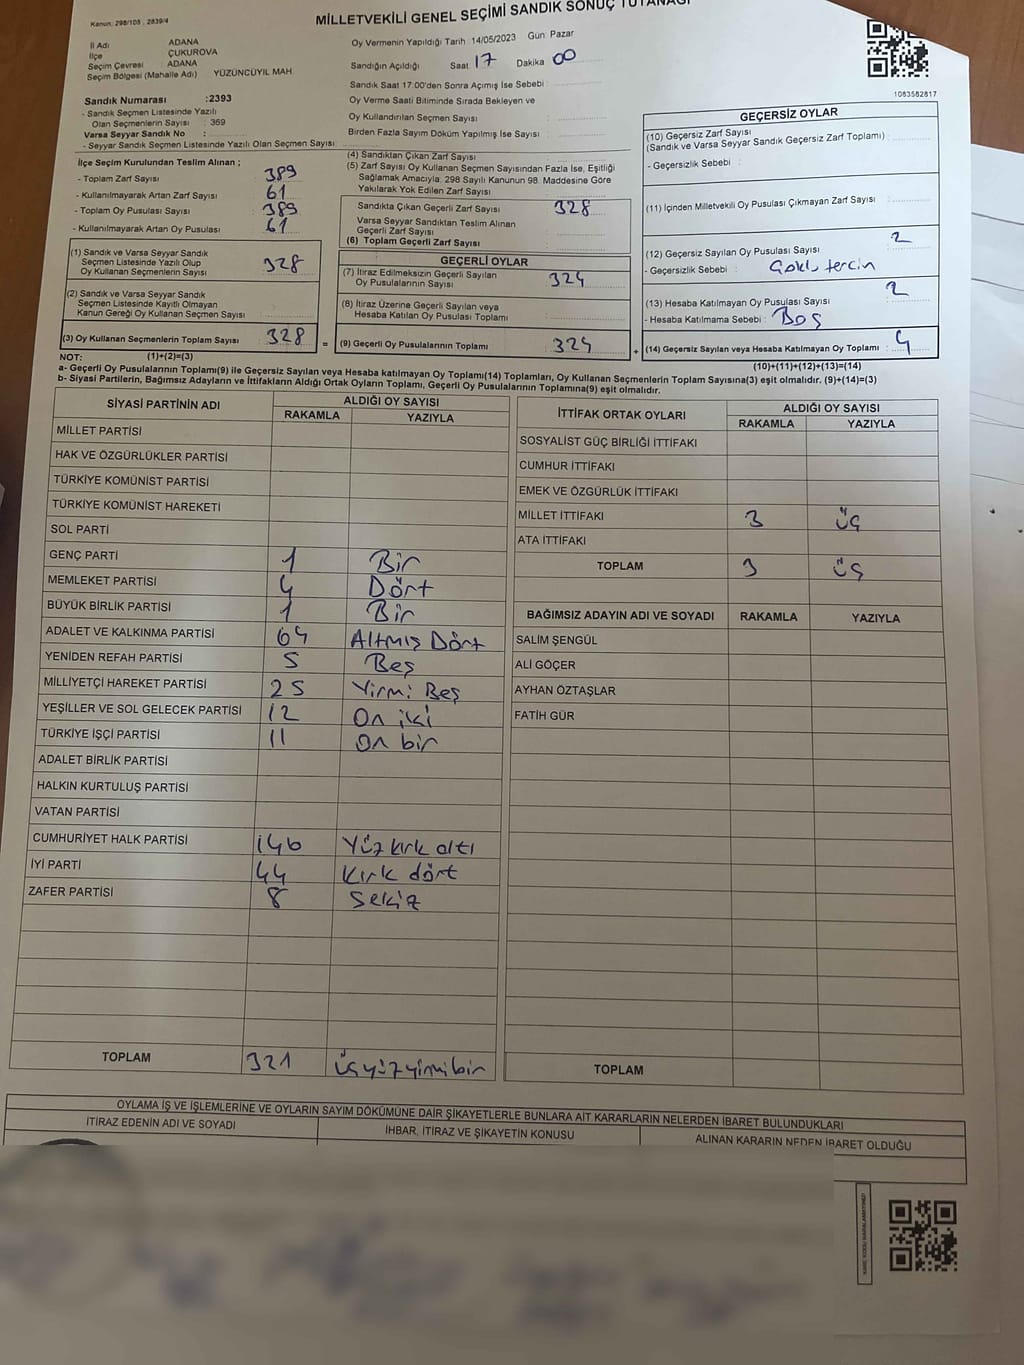 Kanun: 298/105, 2839/4
MİLLETVEKİLİ GENEL SEÇİMİ SANDIK SONUÇ TUTANAĞI
İl Adı ADANA
İlçe ÇUKUROVA
Seçim Çevresi ADANA
Seçim Bölgesi (Mahalle Adı) YÜZÜNCÜYIL MAH
Oy Vermenin Yapıldığı Tarih 14/05/2023 Gün Pazar
Sandığın Açıldığı Saat 17 Dakika 00
Sandık Saat 17.00'den Sonra Açımış İse Sebebi :
Oy Verme Saati Bitiminde Sırada Bekleyen ve
Oy Kullandırılan Seçmen Sayısı :
Birden Fazla Sayım Döküm Yapılmış İse Sayısı :
1083582817
Sandık Numarası :2393
- Sandık Seçmen Listesinde Yazılı
Olan Seçmenlerin Sayısı : 369
Varsa Seyyar Sandık No :
- Seyyar Sandık Seçmen Listesinde Yazılı Olan Seçmen Sayısı :
İlçe Seçim Kurulundan Teslim Alınan ;
- Toplam Zarf Sayısı : 389
- Kullanılmayarak Artan Zarf Sayısı : 61
- Toplam Oy Pusulası Sayısı : 389
- Kullanılmayarak Artan Oy Pusulası : 61
(1) Sandık ve Varsa Seyyar Sandık
Seçmen Listesinde Yazılı Olup
Oy Kullanan Seçmenlerin Sayısı : 328
(2) Sandık ve Varsa Seyyar Sandık
Seçmen Listesinde Kayıtlı Olmayan
Kanun Gereği Oy Kullanan Seçmen Sayısı :
(3) Oy Kullanan Seçmenlerin Toplam Sayısı : 328 =
(4) Sandıktan Çıkan Zarf Sayısı :
(5) Zarf Sayısı Oy Kullanan Seçmen Sayısından Fazla İse, Eşitliği
Sağlamak Amacıyla, 298 Sayılı Kanunun 98. Maddesine Göre
Yakılarak Yok Edilen Zarf Sayısı :
Sandıkta Çıkan Geçerli Zarf Sayısı : 328
Varsa Seyyar Sandıktan Teslim Alınan
Geçerli Zarf Sayısı :
(6) Toplam Geçerli Zarf Sayısı :
GEÇERLİ OYLAR
(7) İtiraz Edilmeksizin Geçerli Sayılan
Oy Pusulalarının Sayısı : 324
(8) İtiraz Üzerine Geçerli Sayılan veya
Hesaba Katılan Oy Pusulası Toplamı :
(9) Geçerli Oy Pusulalarının Toplamı : 324 +
GEÇERSİZ OYLAR
(10) Geçersiz Zarf Sayısı
(Sandık ve Varsa Seyyar Sandık Geçersiz Zarf Toplamı) :
- Geçersizlik Sebebi :
(11) İçinden Milletvekili Oy Pusulası Çıkmayan Zarf Sayısı :
(12) Geçersiz Sayılan Oy Pusulası Sayısı : 2
- Geçersizlik Sebebi : Çoklu tercih
(13) Hesaba Katılmayan Oy Pusulası Sayısı : 2
- Hesaba Katılmama Sebebi : Boş
(14) Geçersiz Sayılan veya Hesaba Katılmayan Oy Toplamı : 4
NOT: (1)+(2)=(3)
(10)+(11)+(12)+(13)=(14)
a- Geçerli Oy Pusulalarının Toplamı(9) ile Geçersiz Sayılan veya Hesaba Katılmayan Oy Toplamı(14) Toplamları, Oy Kullanan Seçmenlerin Toplam Sayısına(3) eşit olmalıdır. (9)+(14)=(3)
b- Siyasi Partilerin, Bağımsız Adayların ve İttifakların Aldığı Ortak Oyların Toplamı, Geçerli Oy Pusulalarının Toplamına(9) eşit olmalıdır.
SİYASİ PARTİNİN ADI ALDIĞI OY SAYISI
RAKAMLA YAZIYLA
MİLLET PARTİSİ
HAK VE ÖZGÜRLÜKLER PARTİSİ
TÜRKİYE KOMÜNİST PARTİSİ
TÜRKİYE KOMÜNİST HAREKETİ
SOL PARTİ
GENÇ PARTİ 1 Bir
MEMLEKET PARTİSİ 4 Dört
BÜYÜK BİRLİK PARTİSİ 1 Bir
ADALET VE KALKINMA PARTİSİ 64 Altmış Dört
YENİDEN REFAH PARTİSİ 5 Beş
MİLLİYETÇİ HAREKET PARTİSİ 25 Yirmi Beş
YEŞİLLER VE SOL GELECEK PARTİSİ 12 On iki
TÜRKİYE İŞÇİ PARTİSİ 11 On bir
ADALET BİRLİK PARTİSİ
HALKIN KURTULUŞ PARTİSİ
VATAN PARTİSİ
CUMHURİYET HALK PARTİSİ 146 Yüz kırk altı
İYİ PARTİ 44 Kırk dört
ZAFER PARTİSİ 8 Sekiz
TOPLAM 321 Üçyüzyirmibir
İTTİFAK ORTAK OYLARI ALDIĞI OY SAYISI
RAKAMLA YAZIYLA
SOSYALİST GÜÇ BİRLİĞİ İTTİFAKI
CUMHUR İTTİFAKI
EMEK VE ÖZGÜRLÜK İTTİFAKI
MİLLET İTTİFAKI 3 Üç
ATA İTTİFAKI
TOPLAM 3 Üç
BAĞIMSIZ ADAYIN ADI VE SOYADI RAKAMLA YAZIYLA
SALİM ŞENGÜL
ALİ GÖÇER
AYHAN ÖZTAŞLAR
FATİH GÜR
TOPLAM
OYLAMA İŞ VE İŞLEMLERİNE VE OYLARIN SAYIM DÖKÜMÜNE DAİR ŞİKAYETLERLE BUNLARA AİT KARARLARIN NELERDEN İBARET BULUNDUKLARI
İTİRAZ EDENİN ADI VE SOYADI İHBAR, İTİRAZ VE ŞİKAYETİN KONUSU ALINAN KARARIN NEDEN İBARET OLDUĞU
KARE KODU KARALAMAYINIZ!